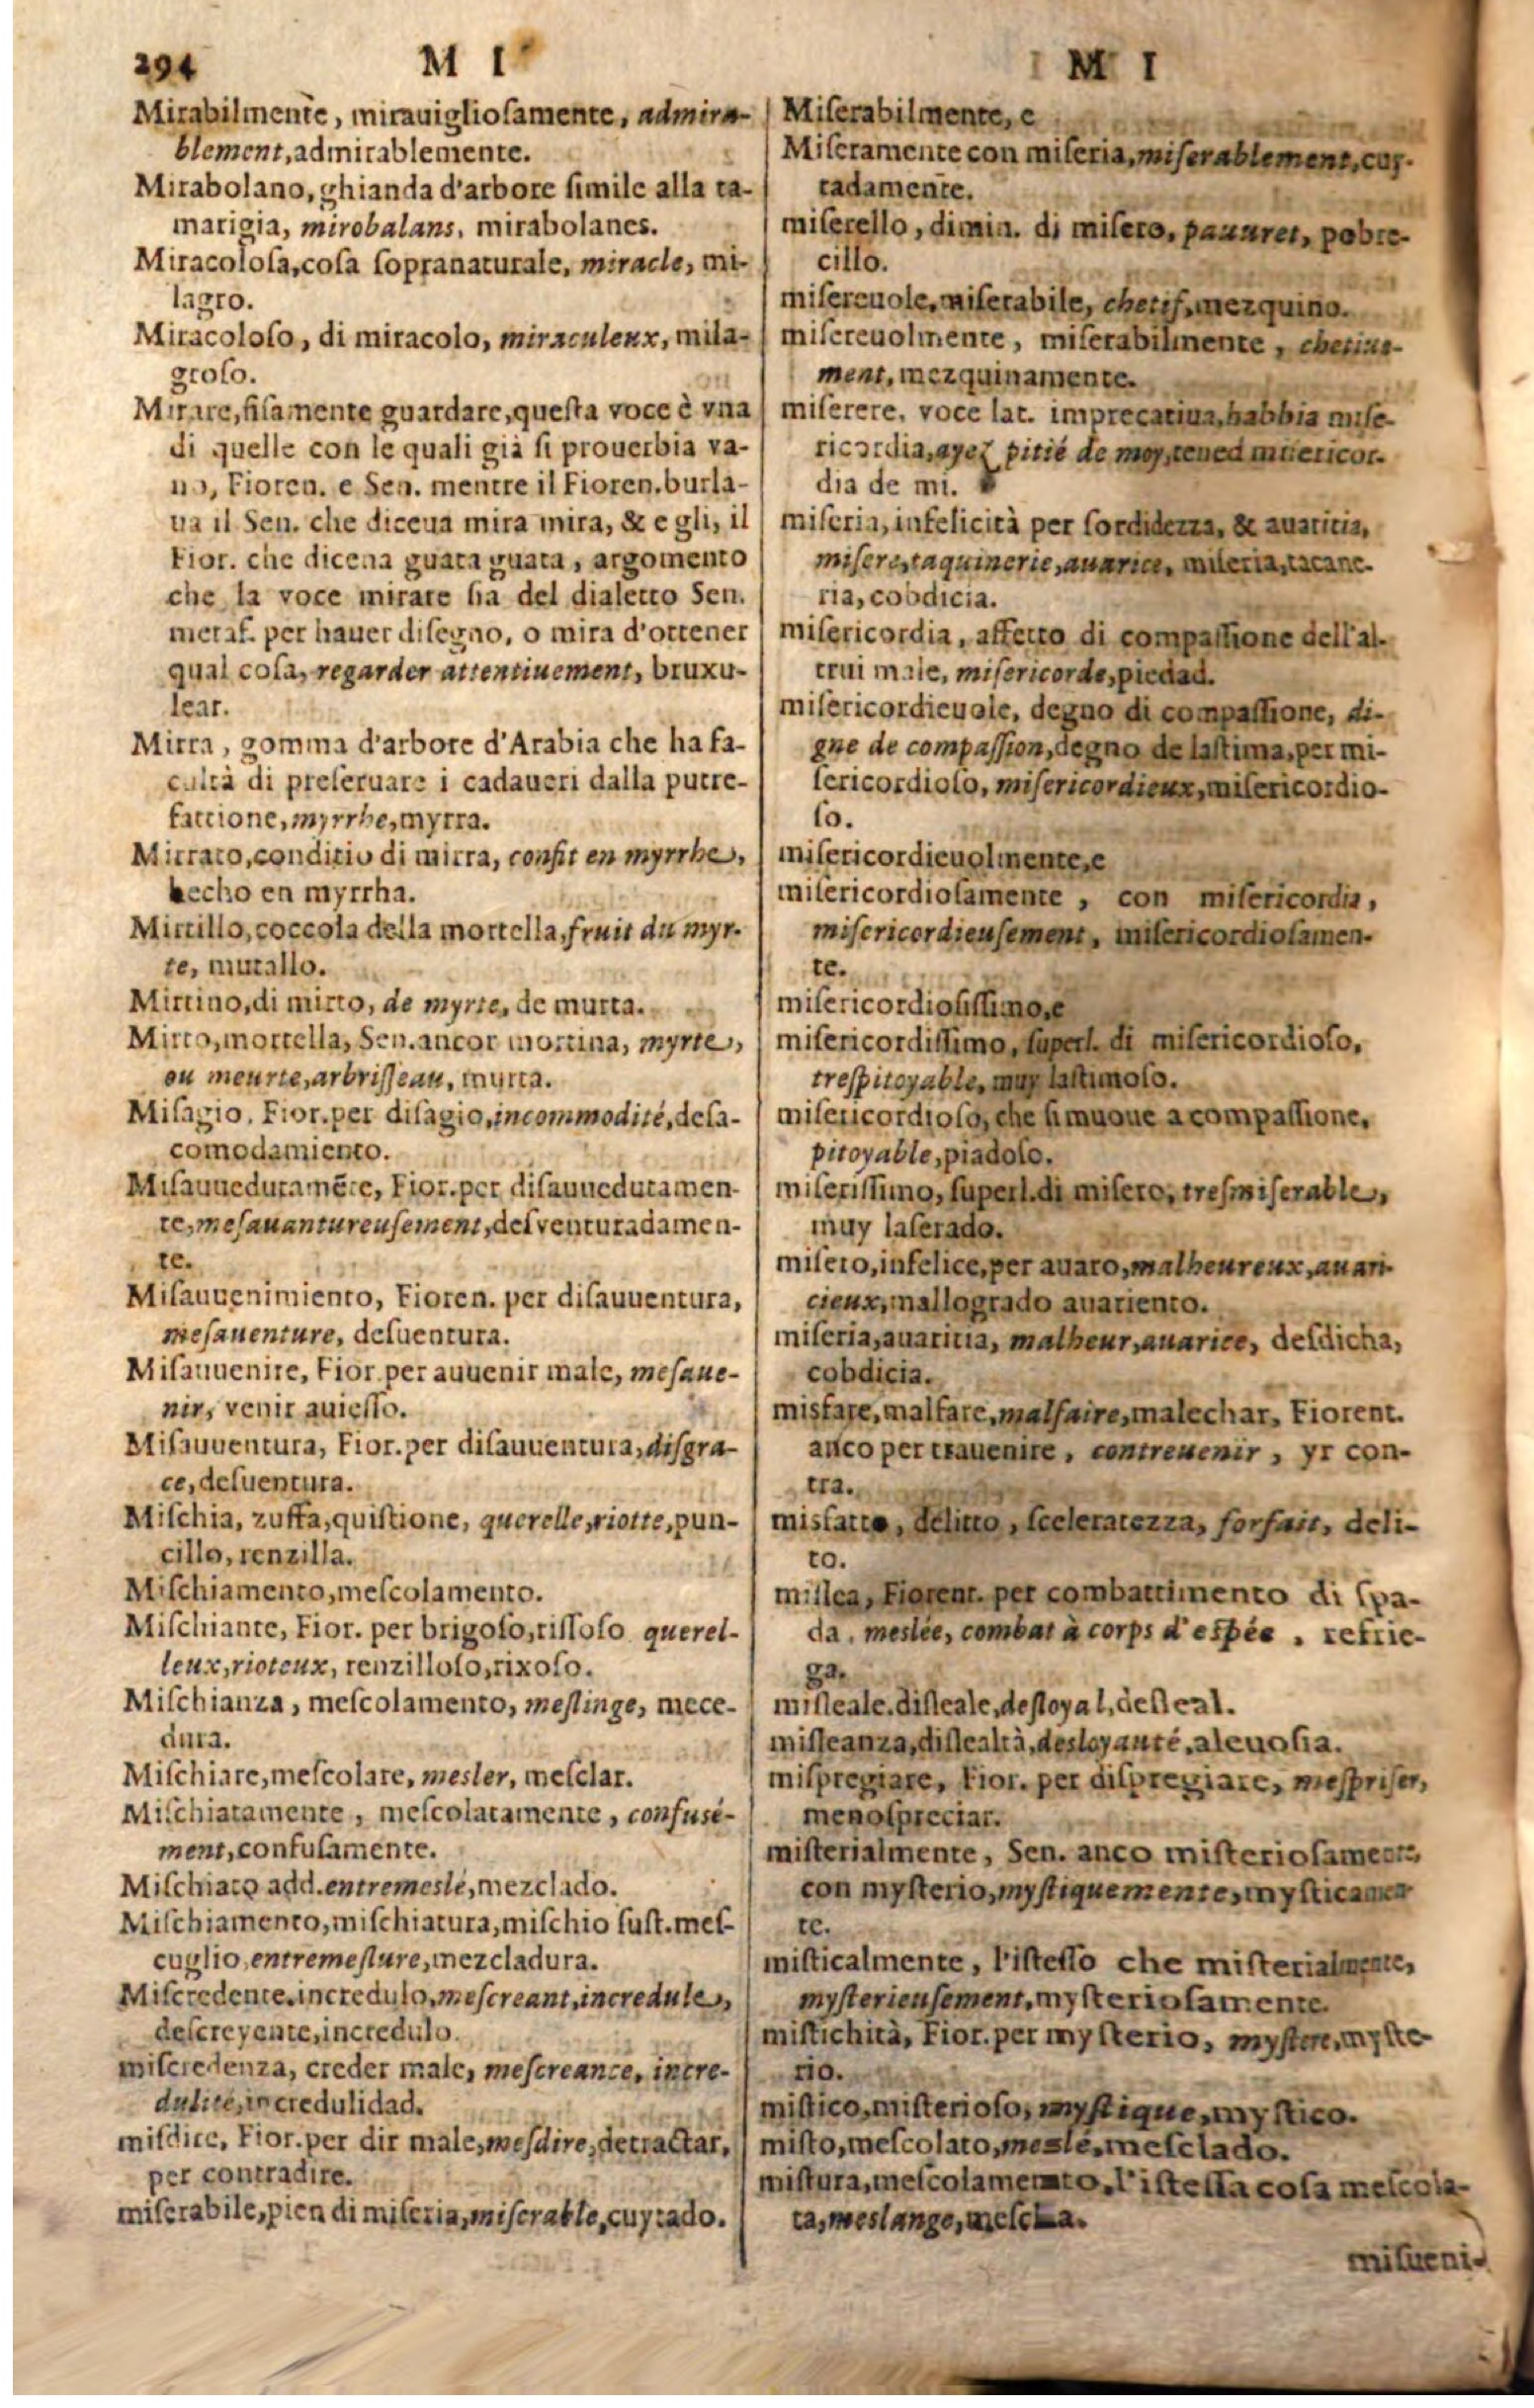 294
M I
M I
Mirabilmente, mirauiglioſamente, admira-
blement, admirablemente.
Mirabolano, ghianda d'arbore ſimile alla ta-
marigia, mirobalans, mirabolanes.
Miracoloſa, coſa ſopranaturale, miracle, mi-
lagro.
Miracoloſo, di miracolo, miraculeux, mila-
groſo.
Mirare, fiſamente guardare, queſta voce è vna
di quelle con le quali già ſi prouerbia va-
no, Fioren. e Sen. mentre il Fioren. burla-
ua il Sen. che diceua mira mira, & egli, il
Fior. che dicena guata guata, argomento
che la voce mirare ſia del dialetto Sen.
metaf. per hauer diſegno, o mira d'ottener
qual coſa, regarder attentiuement, bruxu-
lear.
Mirra, gomma d'arbore d'Arabia che ha fa-
cultà di preſeruare i cadaueri dalla putre-
fattione, myrrhe, myrra.
Mirrato, conditio di mirra, confit en myrrhe,
hecho en myrrha.
Mirtillo, coccola della mortella, fruit du myr-
te, murallo.
Mirtino, di mirto, de myrte, de murta.
Mirto, mortella, Sen. ancor mortina, myrte,
ou meurte, arbriſſeau, murta.
Miſagio, Fior. per diſagio, incommodité, deſa-
comodamiento.
Miſauuedutamẽte, Fior. per diſauuedutamen-
te, meſauantureuſement, deſventuradamen-
te.
Miſauuenimiento, Fioren. per diſauuentura,
meſauenture, deſuentura.
Miſauuenire, Fior. per auuenir male, meſaue-
nir, venir auieſſo.
Miſauuentura, Fior. per diſauuentura, diſgra-
ce, deſuentura.
Miſchia, zuffa, quiſtione, querelle, riotte, pun-
cillo, renzilla.
Miſchiamento, meſcolamento.
Miſchiante, Fior. per brigoſo, riſſoſo querel-
leux, rioteux, renzilloſo, rixoſo.
Miſchianza, meſcolamento, meſlinge, mece-
dura.
Miſchiare, meſcolare, mesler, meſclar.
Miſchiatamente, meſcolatamente, confusé-
ment, confuſamente.
Miſchiato add. entremeslé, mezclado.
Miſchiamento, miſchiatura, miſchio ſuſt. meſ-
cuglio, entremeſlure, mezcladura.
Miſcredente, incredulo, meſcreant, incredule,
deſcreyente, incredulo.
miſcredenza, creder male, meſcreance, incre-
dulité, incredulidad.
miſdire, Fior. per dir male, meſdire, detractar,
per contradire.
miſerabile, pien di miſeria, miſerable, cuytado.
Miſerabilmente, e
Miſeramente con miſeria, miſerablement, cuy-
tadamente.
miſerello, dimin. di miſero, pauuret, pobre-
cillo.
miſereuole, miſerabile, chetif, mezquino.
miſereuolmente, miſerabilmente, chetiue-
ment, mezquinamente.
miſerere, voce lat. imprecatiua, habbia miſe-
ricordia, ayez pitié de moy, tened miſericor-
dia de mi.
miſeria, infelicità per ſordidezza, & auaritia,
miſere, taquinerie, auarice, miſeria, tacane-
ria, cobdicia.
miſericordia, affetto di compaſſione dell'al-
trui male, miſericorde, piedad.
miſericordieuole, degno di compaſſione, di-
gne de compaſſion, degno de laſtima, per mi-
ſericordioſo, miſericordieux, miſericordio-
ſo.
miſericordieuolmente, e
miſericordioſamente, con miſericordia,
miſericordieuſement, miſericordioſamen-
te.
miſericordioſiſſimo, e
miſericordiſſimo, ſuperl. di miſericordioſo,
treſpitoyable, muy laſtimoſo.
miſericordioſo, che ſi muoue a compaſſione,
pitoyable, piadoſo.
miſeriſſimo, ſuperl. di miſero, treſmiſerable,
muy laſerado.
miſero, infelice, per auaro, malheureux, auari-
cieux, mallogrado auariento.
miſeria, auaritia, malheur, auarice, deſdicha,
cobdicia.
misfare, malfare, malfaire, malechar, Fiorent.
anco per trauenire, contreuenir, yr con-
tra.
misfatto, delitto, ſceleratezza, forfait, deli-
to.
miſlea, Fiorent. per combattimento di ſpa-
da, meslée, combat à corps d'eſpée, refrie-
ga.
miſleale, diſleale, deſloyal, deſleal.
miſleanza, diſlealtà, desloyauté, aleuoſia.
miſpregiare, Fior. per diſpregiare, meſpriſer,
menoſpreciar.
miſterialmente, Sen. anco miſterioſamente,
con myſterio, myſtiquemente, myſticamen-
te.
miſticalmente, l'iſteſſo che miſterialmente,
myſterieuſement, myſterioſamente.
miſtichità, Fior. per myſterio, myſtere, myſte-
rio.
miſtico, miſterioſo, myſtique, myſtico.
miſto, meſcolato, meslé, meſclado.
miſtura, meſcolamento, l'iſteſſa coſa meſcola-
ta, meslange, meſcla.
miſueni-